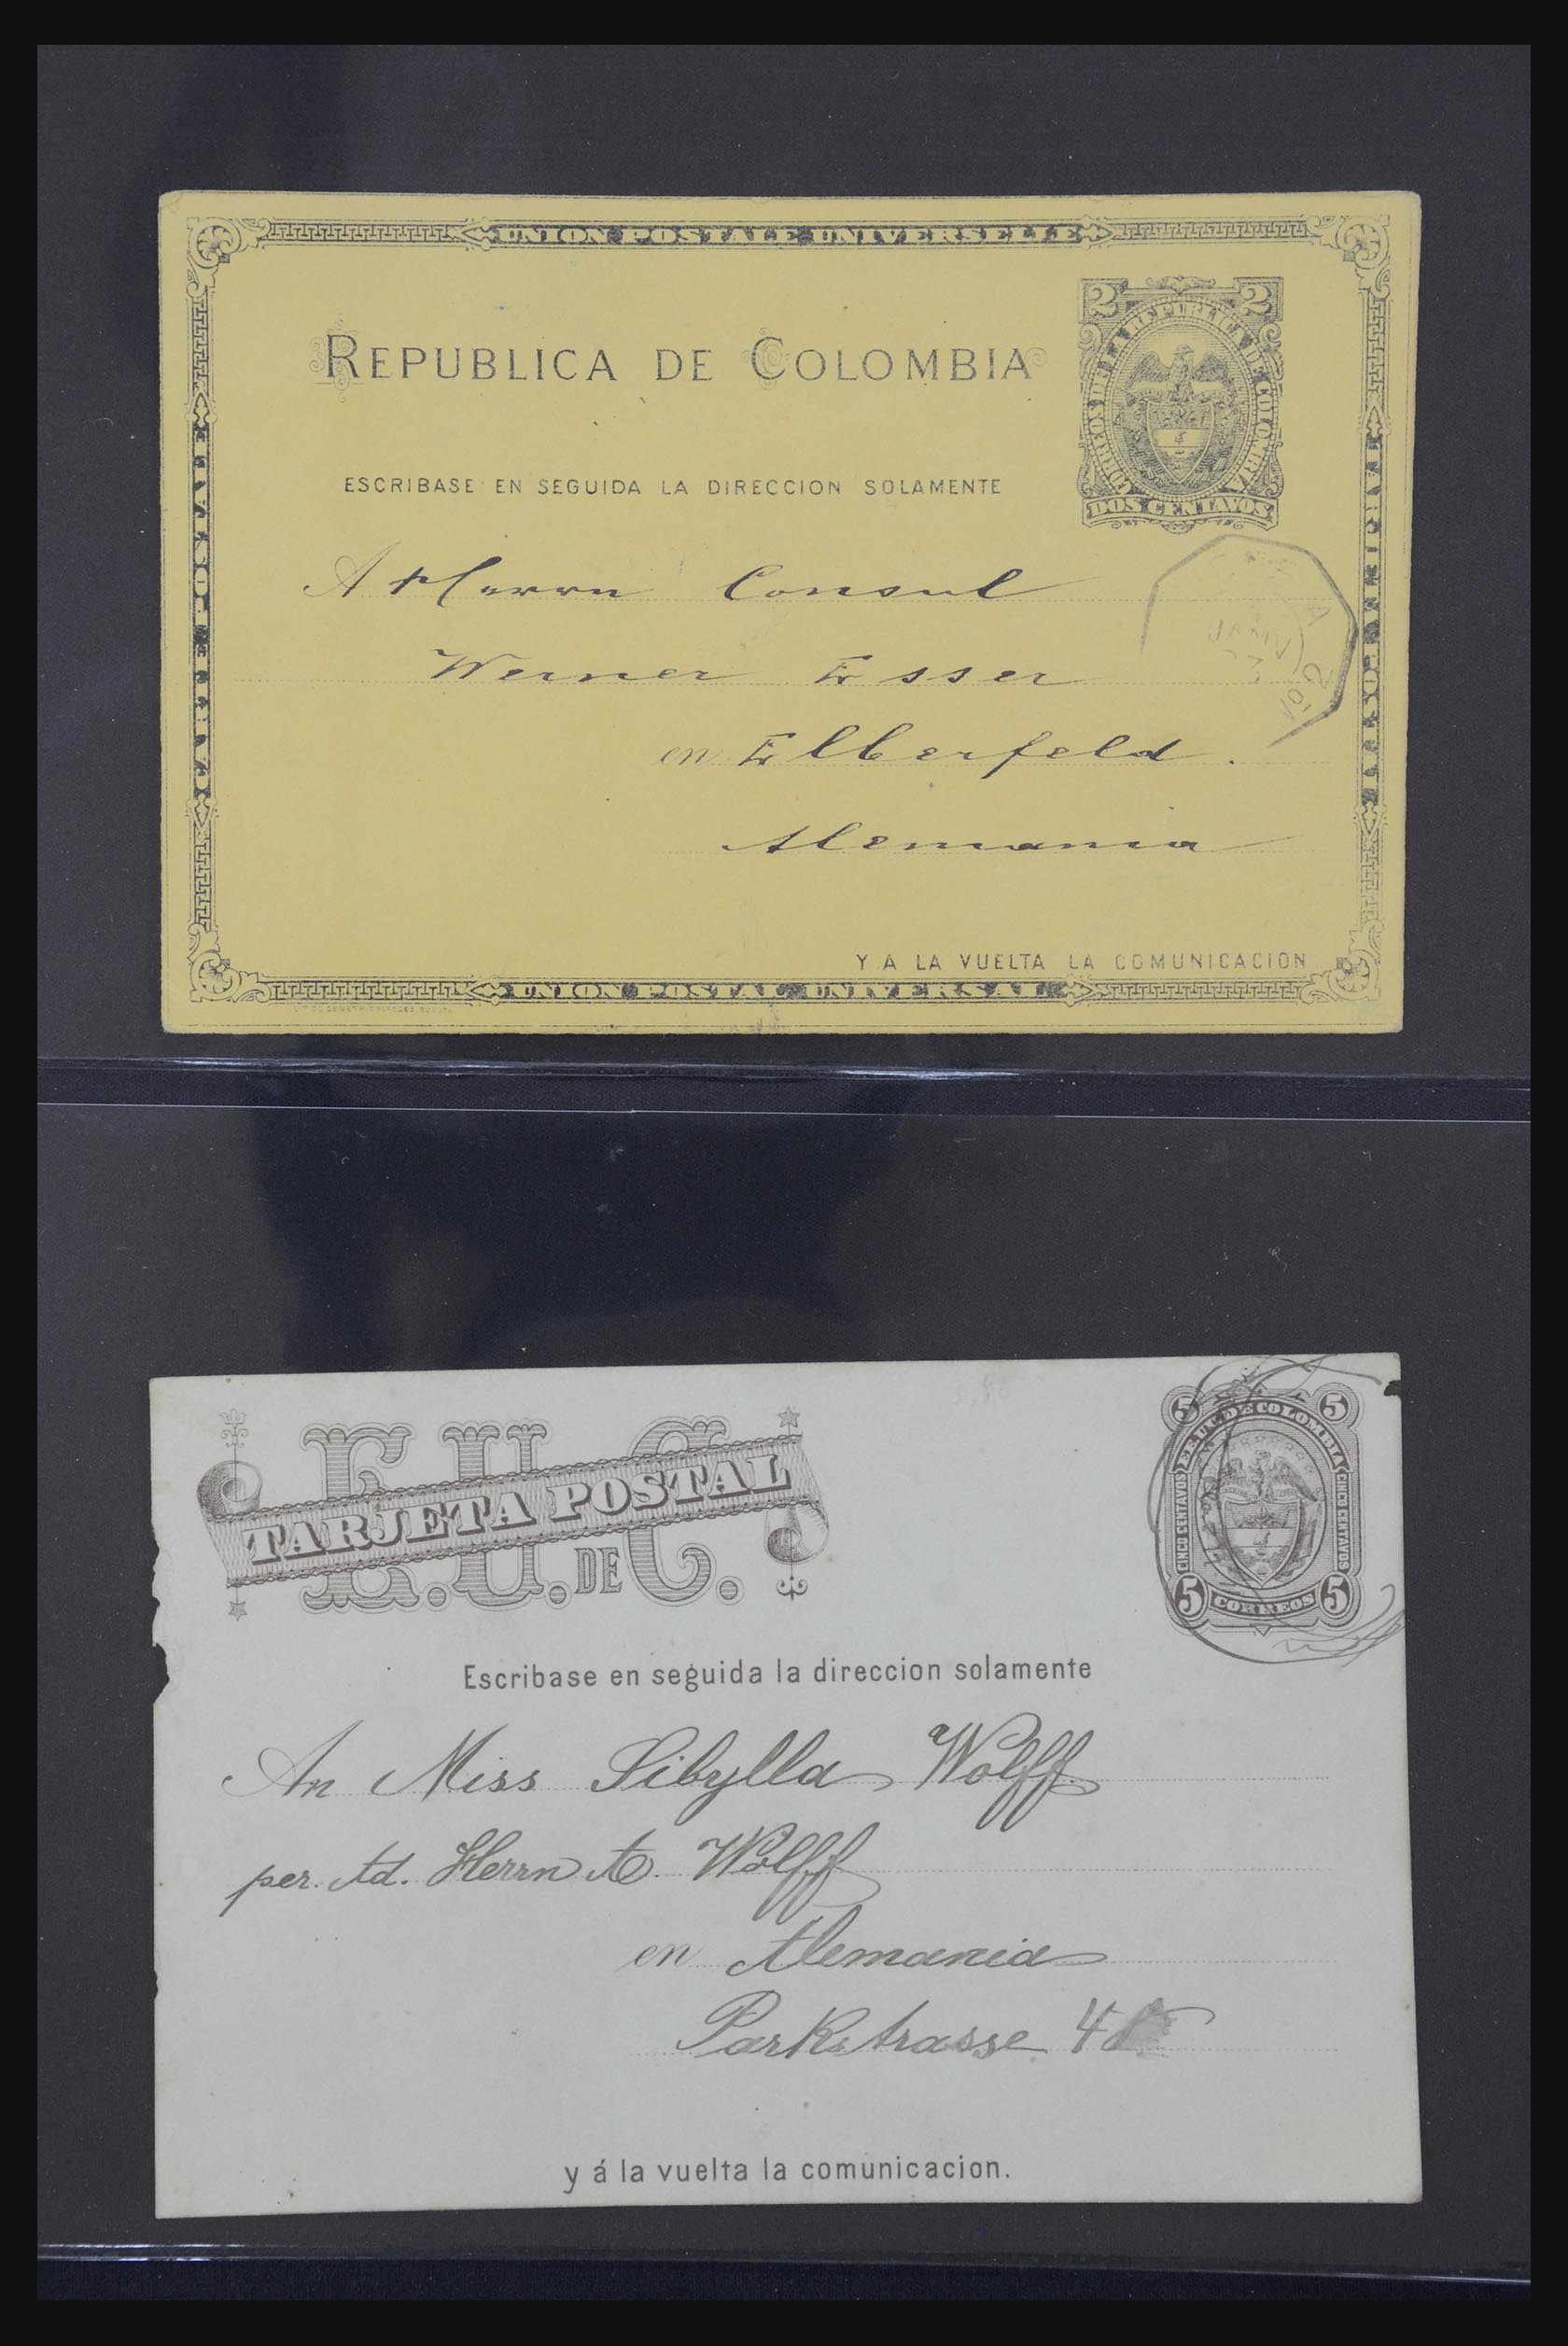 UNION POSTALE UNIVERSELLE
REPUBLICA DE COLOMBIA
2 2
CORREOS DE LA REPUBLICA DE COLOMBIA
DOS CENTAVOS
TARJETA POSTAL
TARJETA POSTAL
ESCRIBASE EN SEGUIDA LA DIRECCION SOLAMENTE
A Herrn Consul
Werner Esser
en Elberfeld.
Alemania
Y A LA VUELTA LA COMUNICACION
UNION POSTAL UNIVERSAL
E.U. DE C.
TARJETA POSTAL
5 5
EE. UU. DE COLOMBIA
CINCO CENTAVOS
CINCO CENTAVOS
5 CORREOS 5
Escribase en seguida la direccion solamente
An Miss Sibylla Wolff
per. Ad. Herrn A. Wolff
en Alemania
Parkstrasse
y á la vuelta la comunicacion.